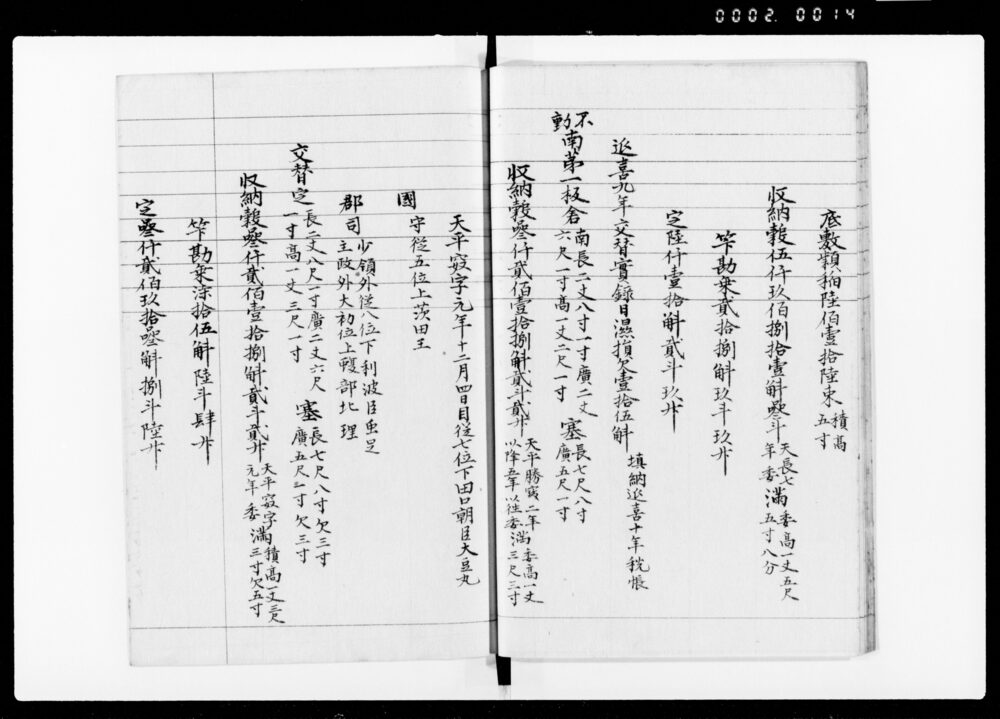 0002.0014
底敷穎稲陸佰壹拾陸束 積高五寸
収納穀伍仟玖佰捌拾壹斛叄斗 天長七年委 満 委高一丈五尺五寸八分
竿勘乗貳拾捌斛玖斗玖升
定陸仟壹拾斛貳斗玖升
延喜九年交替實録日濕損欠壹拾伍斛 填納延喜十年税帳
不動南第一板倉 南長二丈八寸一寸廣二丈六尺一寸高一丈二尺一寸 塞 長七尺八寸廣五尺一寸
収納穀叄仟貳佰壹拾捌斛貳斗貳升 天平勝寳二年以降五年以往委 満 委高一丈三尺三寸
天平寳字元年十二月四日目従七位下田口朝臣大豆丸
國 守従五位上茨田王
郡司 少領外従八位下利波臣虫足 主政外大初位上蝮部北理
交替定 長二丈八尺一寸廣二丈六尺一寸高一丈三尺一寸 塞 長七尺八寸欠三寸廣五尺二寸欠三寸
収納穀叄仟貳佰壹拾捌斛貳斗貳升 天平寳字元年委 満 積高一丈三尺三寸欠五寸
竿勘乗漆拾伍斛陸斗肆升
定叄仟貳佰玖拾叄斛捌斗陸升